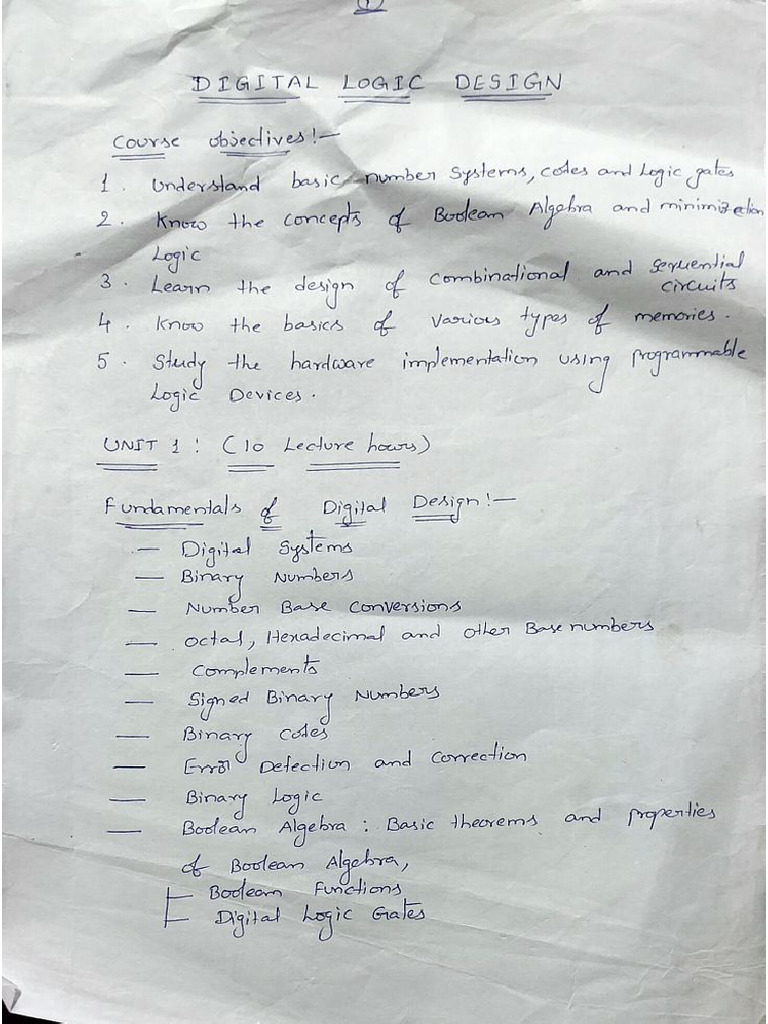 DIGITAL LOGIC DESIGN
Course objectives:-
1. Understand basic number systems, codes and Logic gates
2. Know the concepts of Boolean Algebra and minimization
Logic
3. Learn the design of combinational and sequential
circuits
4. Know the basics of various types of memories.
5. Study the hardware implementation using programmable
Logic Devices.
UNIT 1: (10 Lecture hours)
Fundamentals of Digital Design:-
— Digital Systems
— Binary Numbers
— Number Base conversions
— Octal, Hexadecimal and other Base numbers
— Complements
— Signed Binary Numbers
— Binary codes
— Error Detection and Correction
— Binary Logic
— Boolean Algebra: Basic theorems and properties
of Boolean Algebra,
— Boolean Functions
— Digital Logic Gates